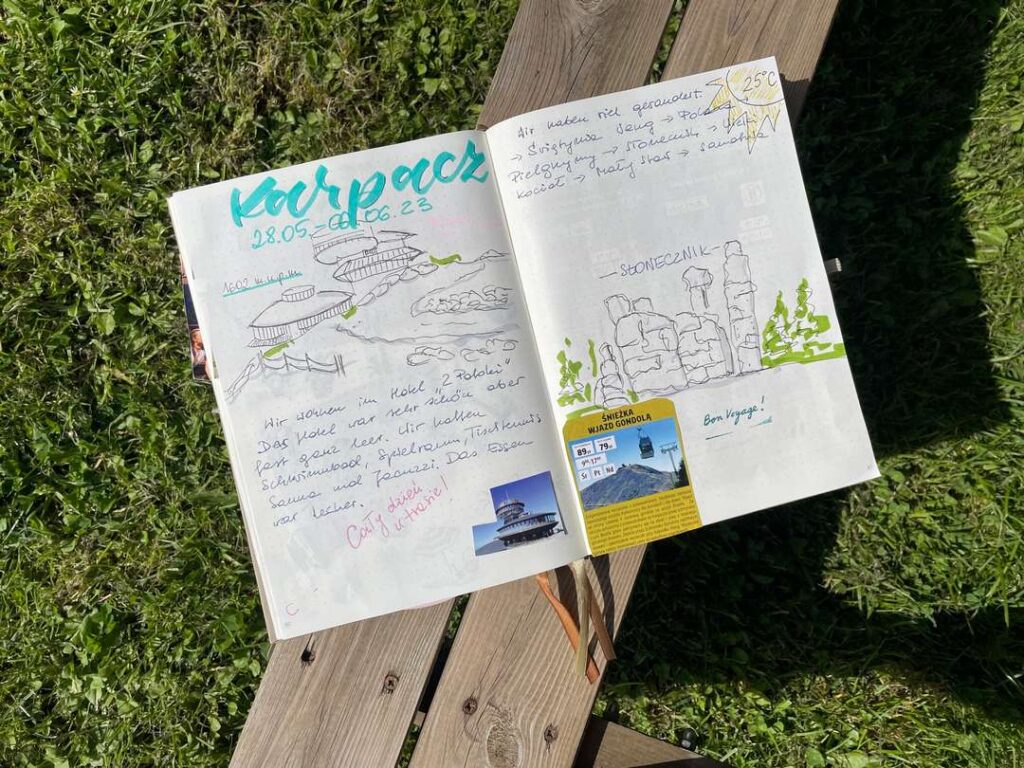 Karpacz
28.05.-06.06.23
1602 m.n.p.m.
Wir wohnen im Hotel „2 Potoki"
Das Hotel war sehr schön aber
fast ganz leer. Wir hatten
Schwimmbad, Spielraum, Tischtennis
Sauna und Jacuzzi. Das Essen
war lecker.
Cały dzień
w trasie!
25°C
Wir haben viel gewandert.
→ Świątynia Wang →
Pielgrzymy → Słonecznik →
Kocioł → Mały Staw → Samotnia
– SŁONECZNIK –
ŚNIEŻKA
WJAZD GONDOLĄ
89 79
Śr Pt Nd
Bon Voyage!